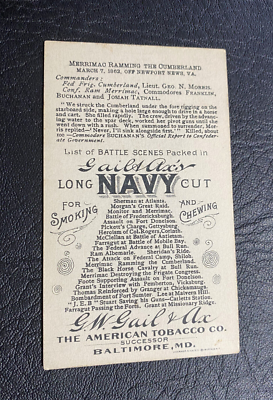 MERRIMAC RAMMING THE CUMBERLAND.
MARCH 7, 1862, OFF NEWPORT NEWS, VA.
Commanders:
Fed. Frig. Cumberland, LIEUT. GEO. N. MORRIS.
Conf. Ram Merrimac, COMMODORES FRANKLIN,
BUCHANAN AND JOSIAH TATNALL.
"We struck the Cumberland under the fore rigging on the
starboard side, making a hole large enough to drive in a horse
and cart. She filled rapidly. The crew, driven by the advanc-
ing water to the spar deck, worked her pivot guns until she
went down with a rush. When summoned to surrender, Mor-
ris replied—'Never, I'll sink alongside first.'" Killed, about
100—COMMODORE BUCHANAN'S Official Report to Confeder-
ate Government.
LIST OF BATTLE SCENES PACKED IN
Gail & Ax's
LONG NAVY CUT
FOR SMOKING AND CHEWING
Sherman at Atlanta.
Morgan's Great Raid.
Monitor and Merrimac.
Battle of Fredericksburg.
Assault on Fort Donelson.
Pickett's Charge, Gettysburg.
Heroism of Col. Rogers, Corinth.
McClellan at Antietam.
Farragut at Battle of Mobile Bay.
The Federal Advance of Bull Run.
Ram Albemarle. Sheridan's Ride.
The Attack on Federal Camp, Shiloh.
Merrimac Ramming the Cumberland.
The Black Horse Cavalry at Bull Run.
Merrimac Destroying the Frigate Congress.
Foote Supporting Assault on Fort Donelson.
Grant's Interview with Pemberton, Vicksburg.
Thomas Reinforced by Granger at Chickamauga.
Bombardment of Fort Sumter. Lee at Malvern Hill.
"J. E. B." Stuart Saving his Guns—Catletts Station.
Farragut Passing the Forts. Grant at Missionary Ridge.
G. W. Gail & Ax
THE AMERICAN TOBACCO CO.
SUCCESSOR
BALTIMORE, MD.